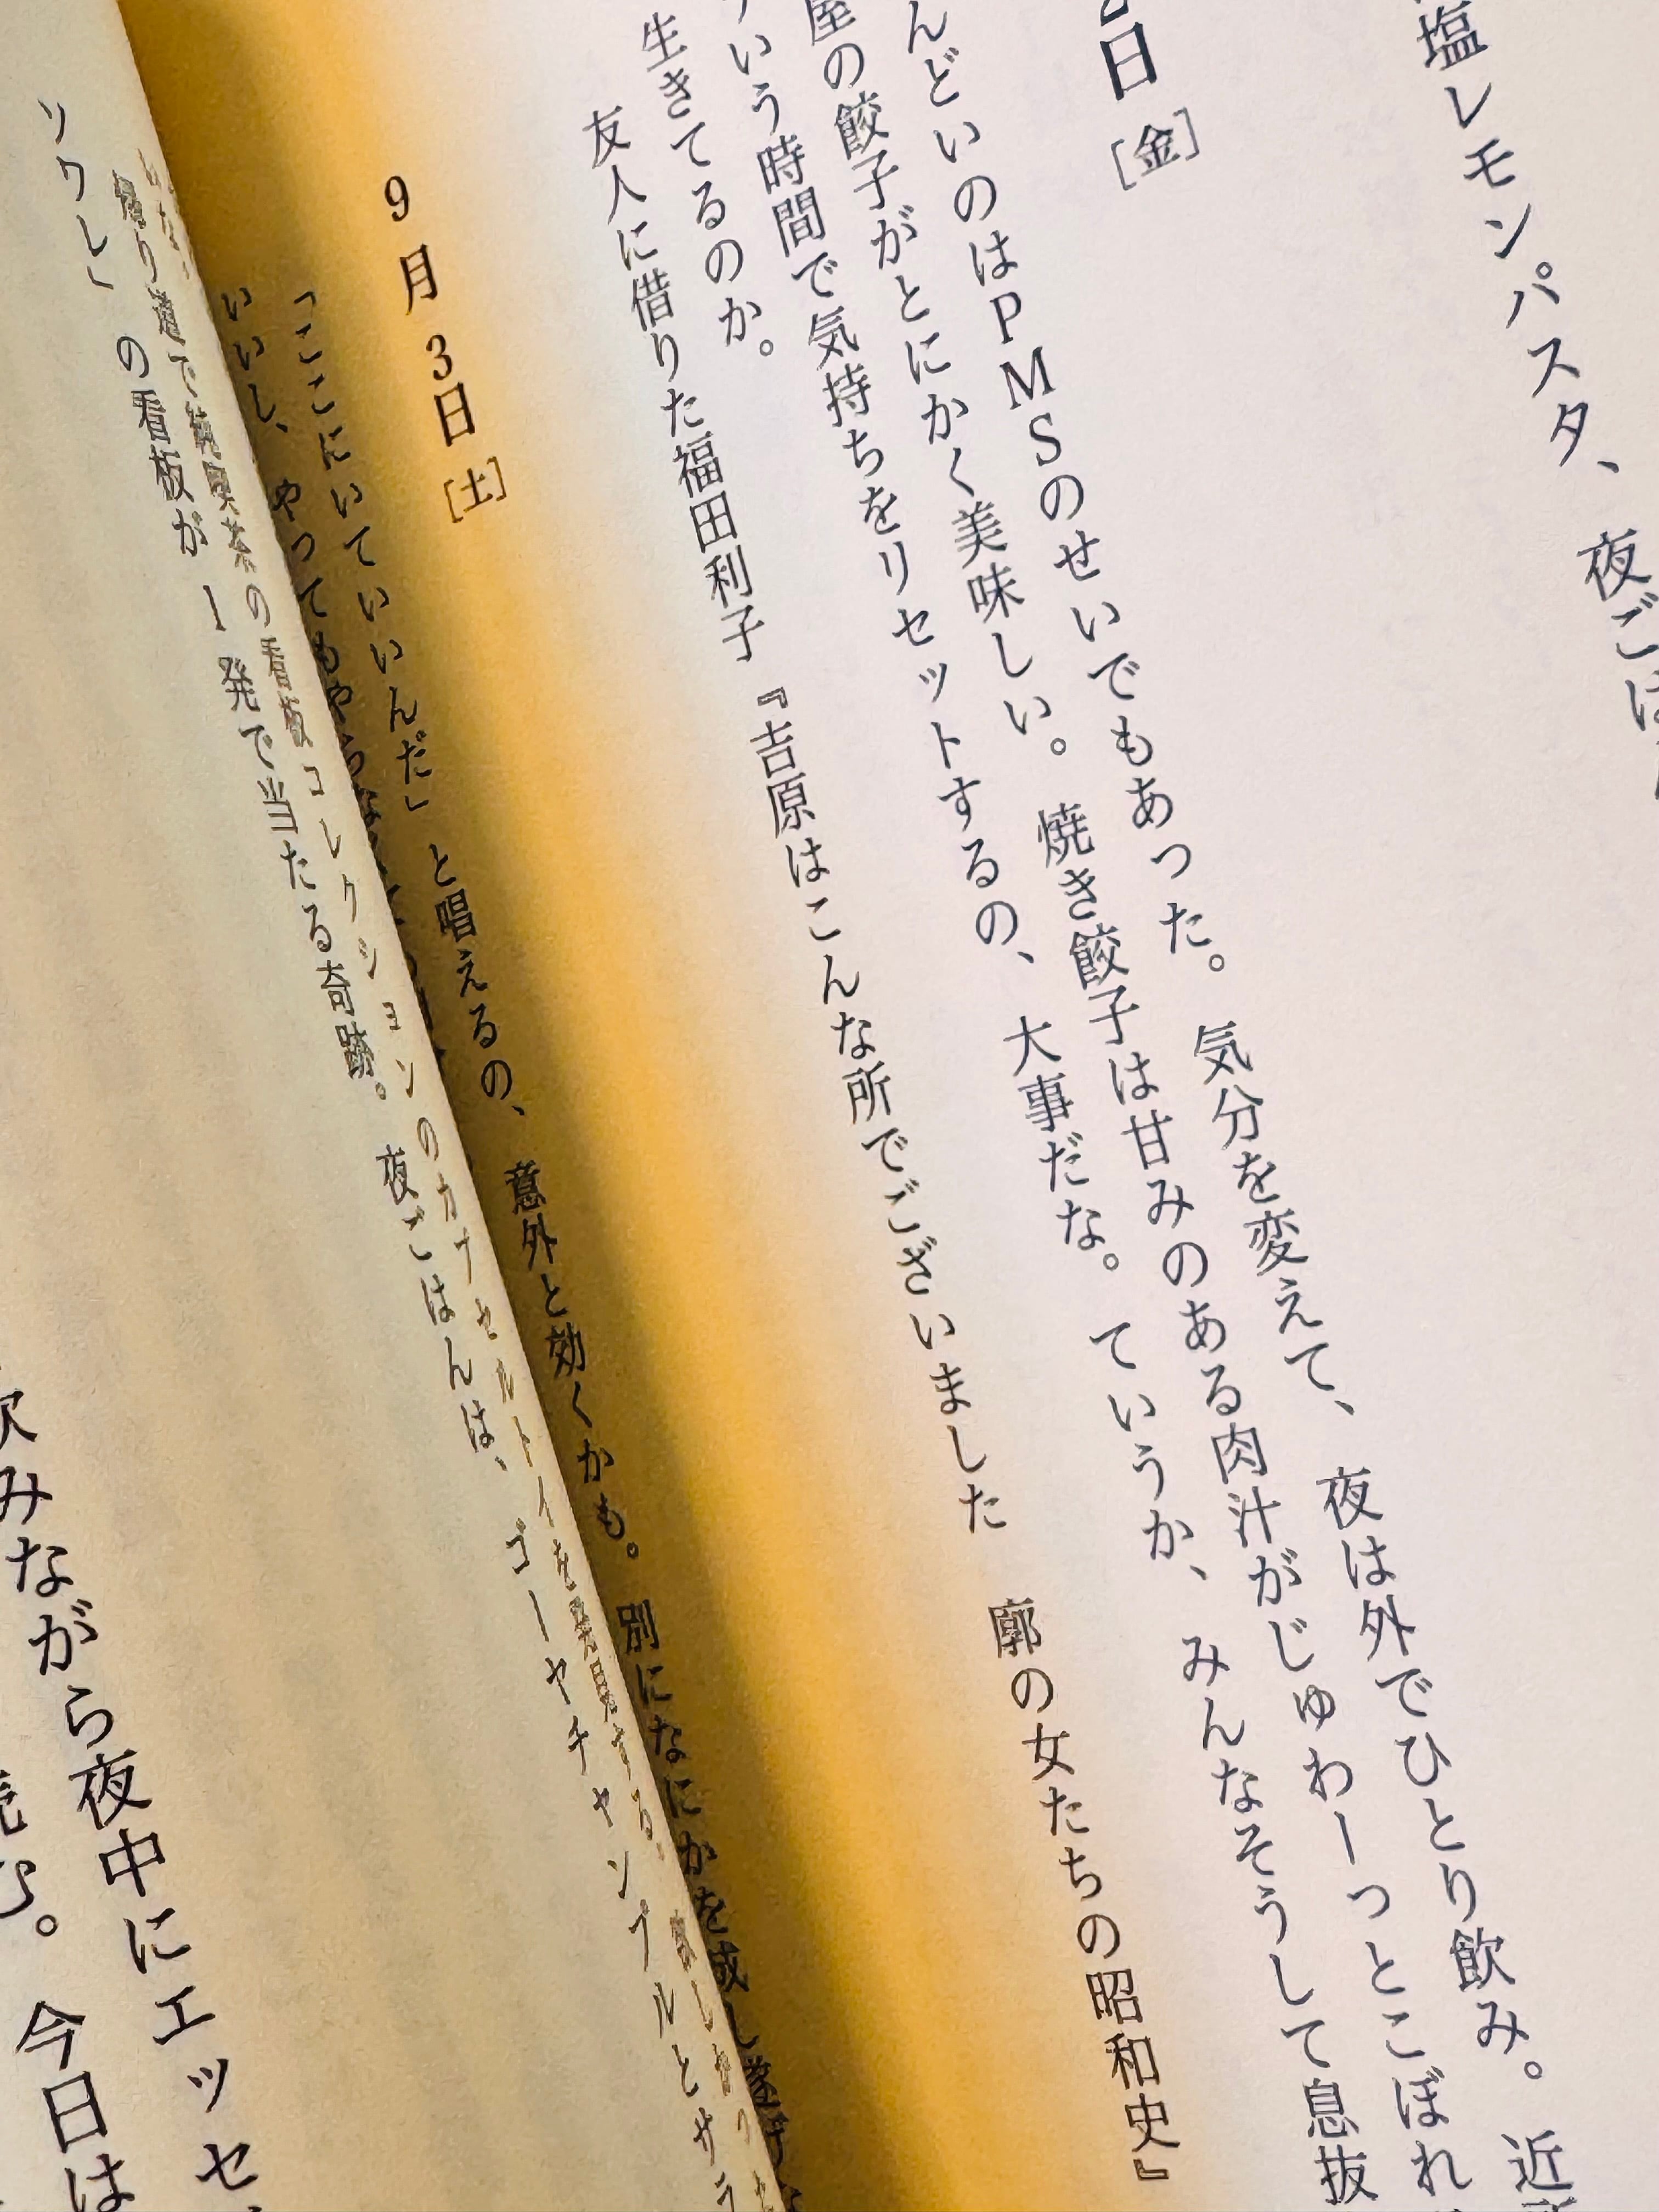 塩レモンパスタ、夜ごは
日［金］
んどいのはＰＭＳのせいでもあった。気分を変えて、夜は外でひとり飲み。近
屋の餃子がとにかく美味しい。焼き餃子は甘みのある肉汁がじゅわーっとこぼれ
いう時間で気持ちをリセットするの、大事だな。ていうか、みんなそうして息抜
生きてるのか。
友人に借りた福田利子『吉原はこんな所でございました　廓の女たちの昭和史』
9月3日［土］
「ここにいていいんだ」と唱えるの、意外と効くかも。別になにかを成し
いいし、やってもやらな
の看板コレクションのカプセルトイを発見する。
の看板が一発で当たる奇跡。夜ごはんは、ゴーヤチャンプルとサラ
飲みながら夜中にエッセ
今日は